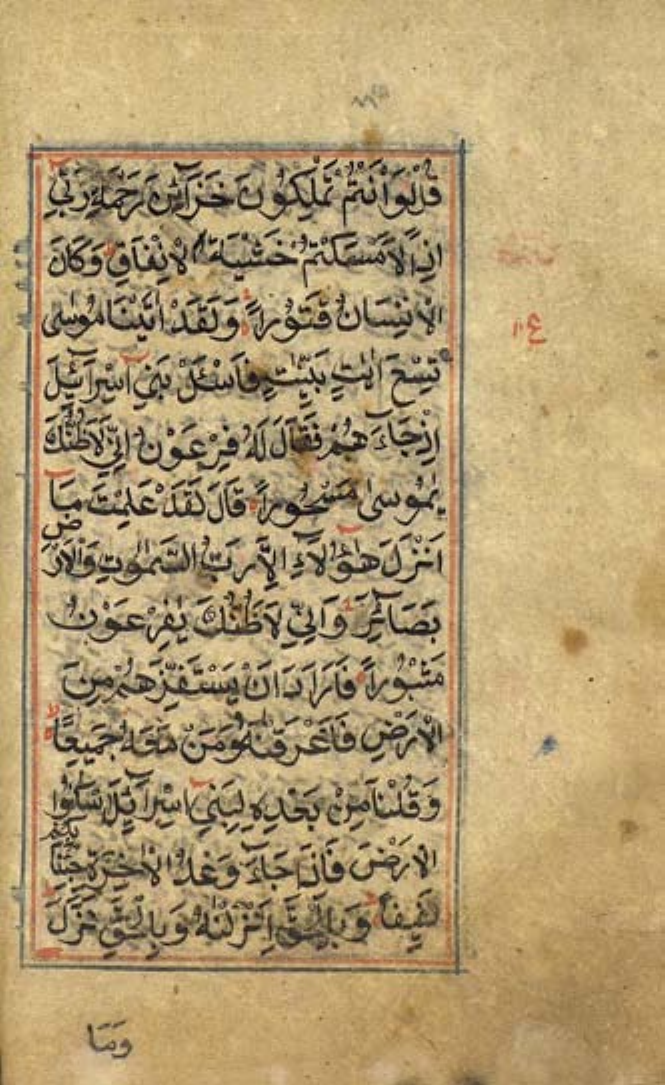 قُلْ لَوْ اَنْتُمْ تَمْلِكُونَ خَزَآئِنَ رَحْمَةِ رَبّٖى
اِذًا لَاَمْسَكْتُمْ خَشْيَةَ الْاِنْفَاقِ وَكَانَ
الْاِنْسَانُ قَتُوراً وَلَقَدْ اٰتَيْنَا مُوسٰى
تِسْعَ اٰيٰتٍ بَيِّنٰتٍ فَاسْئَلْ بَنٖى اِسْرَآئٖلَ
اِذْ جَآءَ هُمْ فَقَالَ لَهُ فِرْعَوْنُ اِنّٖى لَاَظُنُّكَ
يٰمُوسٰى مَسْحُوراً قَالَ لَقَدْ عَلِمْتَ مَآ
اَنْزَلَ هٰٓؤُلَآءِ اِلَّا رَبُّ السَّمٰوٰتِ وَالْاَرْضِ
بَصَآئِرَ وَاِنّٖى لَاَظُنُّكَ يٰفِرْعَوْنُ
مَثْبُوراً فَاَرَادَ اَنْ يَسْتَفِزَّهُمْ مِنَ
الْاَرْضِ فَاَغْرَقْنٰهُ وَمَنْ مَعَهُ جَمٖيعًا
وَقُلْنَا مِنْ بَعْدِهٖ لِبَنٖى اِسْرَآئٖلَ اسْكُنُوا
الْاَرْضَ فَاِذَا جَآءَ وَعْدُ الْاٰخِرَةِ جِئْنَا بِكُمْ
لَفٖيفاً وَبِالْحَقِّ اَنْزَلْنٰهُ وَبِالْحَقِّ نَزَلَ
وَمَا